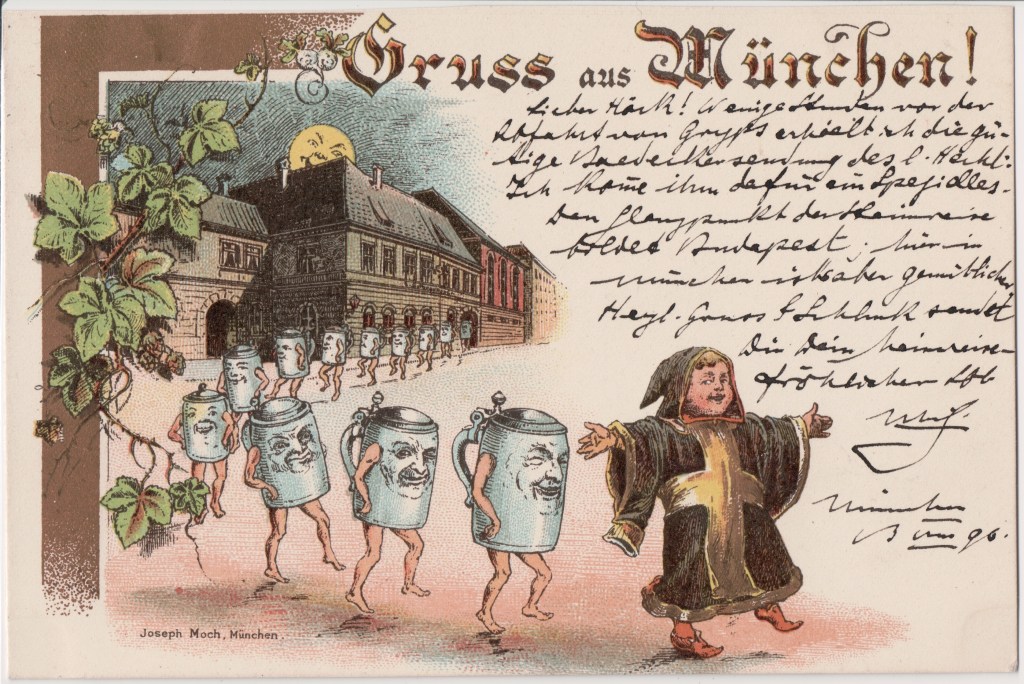 Gruss aus München!
Lieber Höck! Wenige Stunden vor der
Abfahrt von erhielt ich die gü-
tige Baedeckersendung des l. Höckl:
Ich komme ihm dafür ein Spezielles-
Den Glanzpunkt der Heimreise
bildet Budapest; hier in
München ist's aber gemütlicher,
Herzl. Gruss & Schluck sendet
Dir Dein heimreise-
fröhlicher
München
96.
Joseph Moch, München.